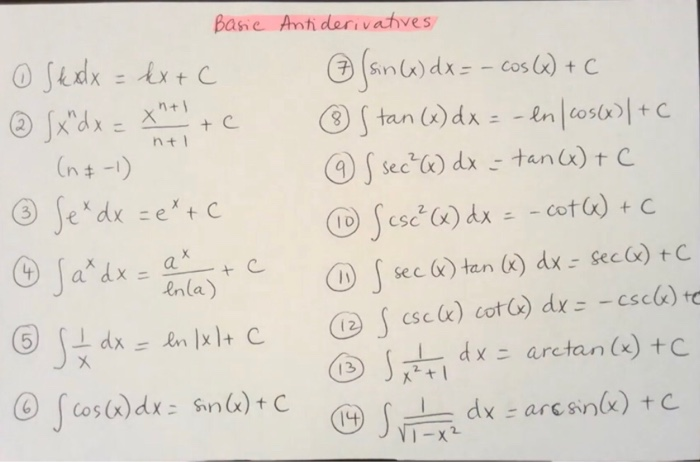 Basic Antiderivatives
① ∫k dx = kx + C
② ∫xⁿdx = xⁿ⁺¹/(n+1) + C
(n ≠ -1)
③ ∫eˣ dx = eˣ + C
④ ∫aˣ dx = aˣ/ln(a) + C
⑤ ∫ 1/x dx = ln|x| + C
⑥ ∫cos(x) dx = sin(x) + C
⑦ ∫sin(x) dx = - cos(x) + C
⑧ ∫ tan(x) dx = - ln|cos(x)| + C
⑨ ∫ sec²(x) dx = tan(x) + C
⑩ ∫ csc²(x) dx = - cot(x) + C
⑪ ∫ sec(x) tan(x) dx = sec(x) + C
⑫ ∫ csc(x) cot(x) dx = - csc(x) + C
⑬ ∫ 1/(x²+1) dx = arctan(x) + C
⑭ ∫ 1/√(1-x²) dx = arcsin(x) + C